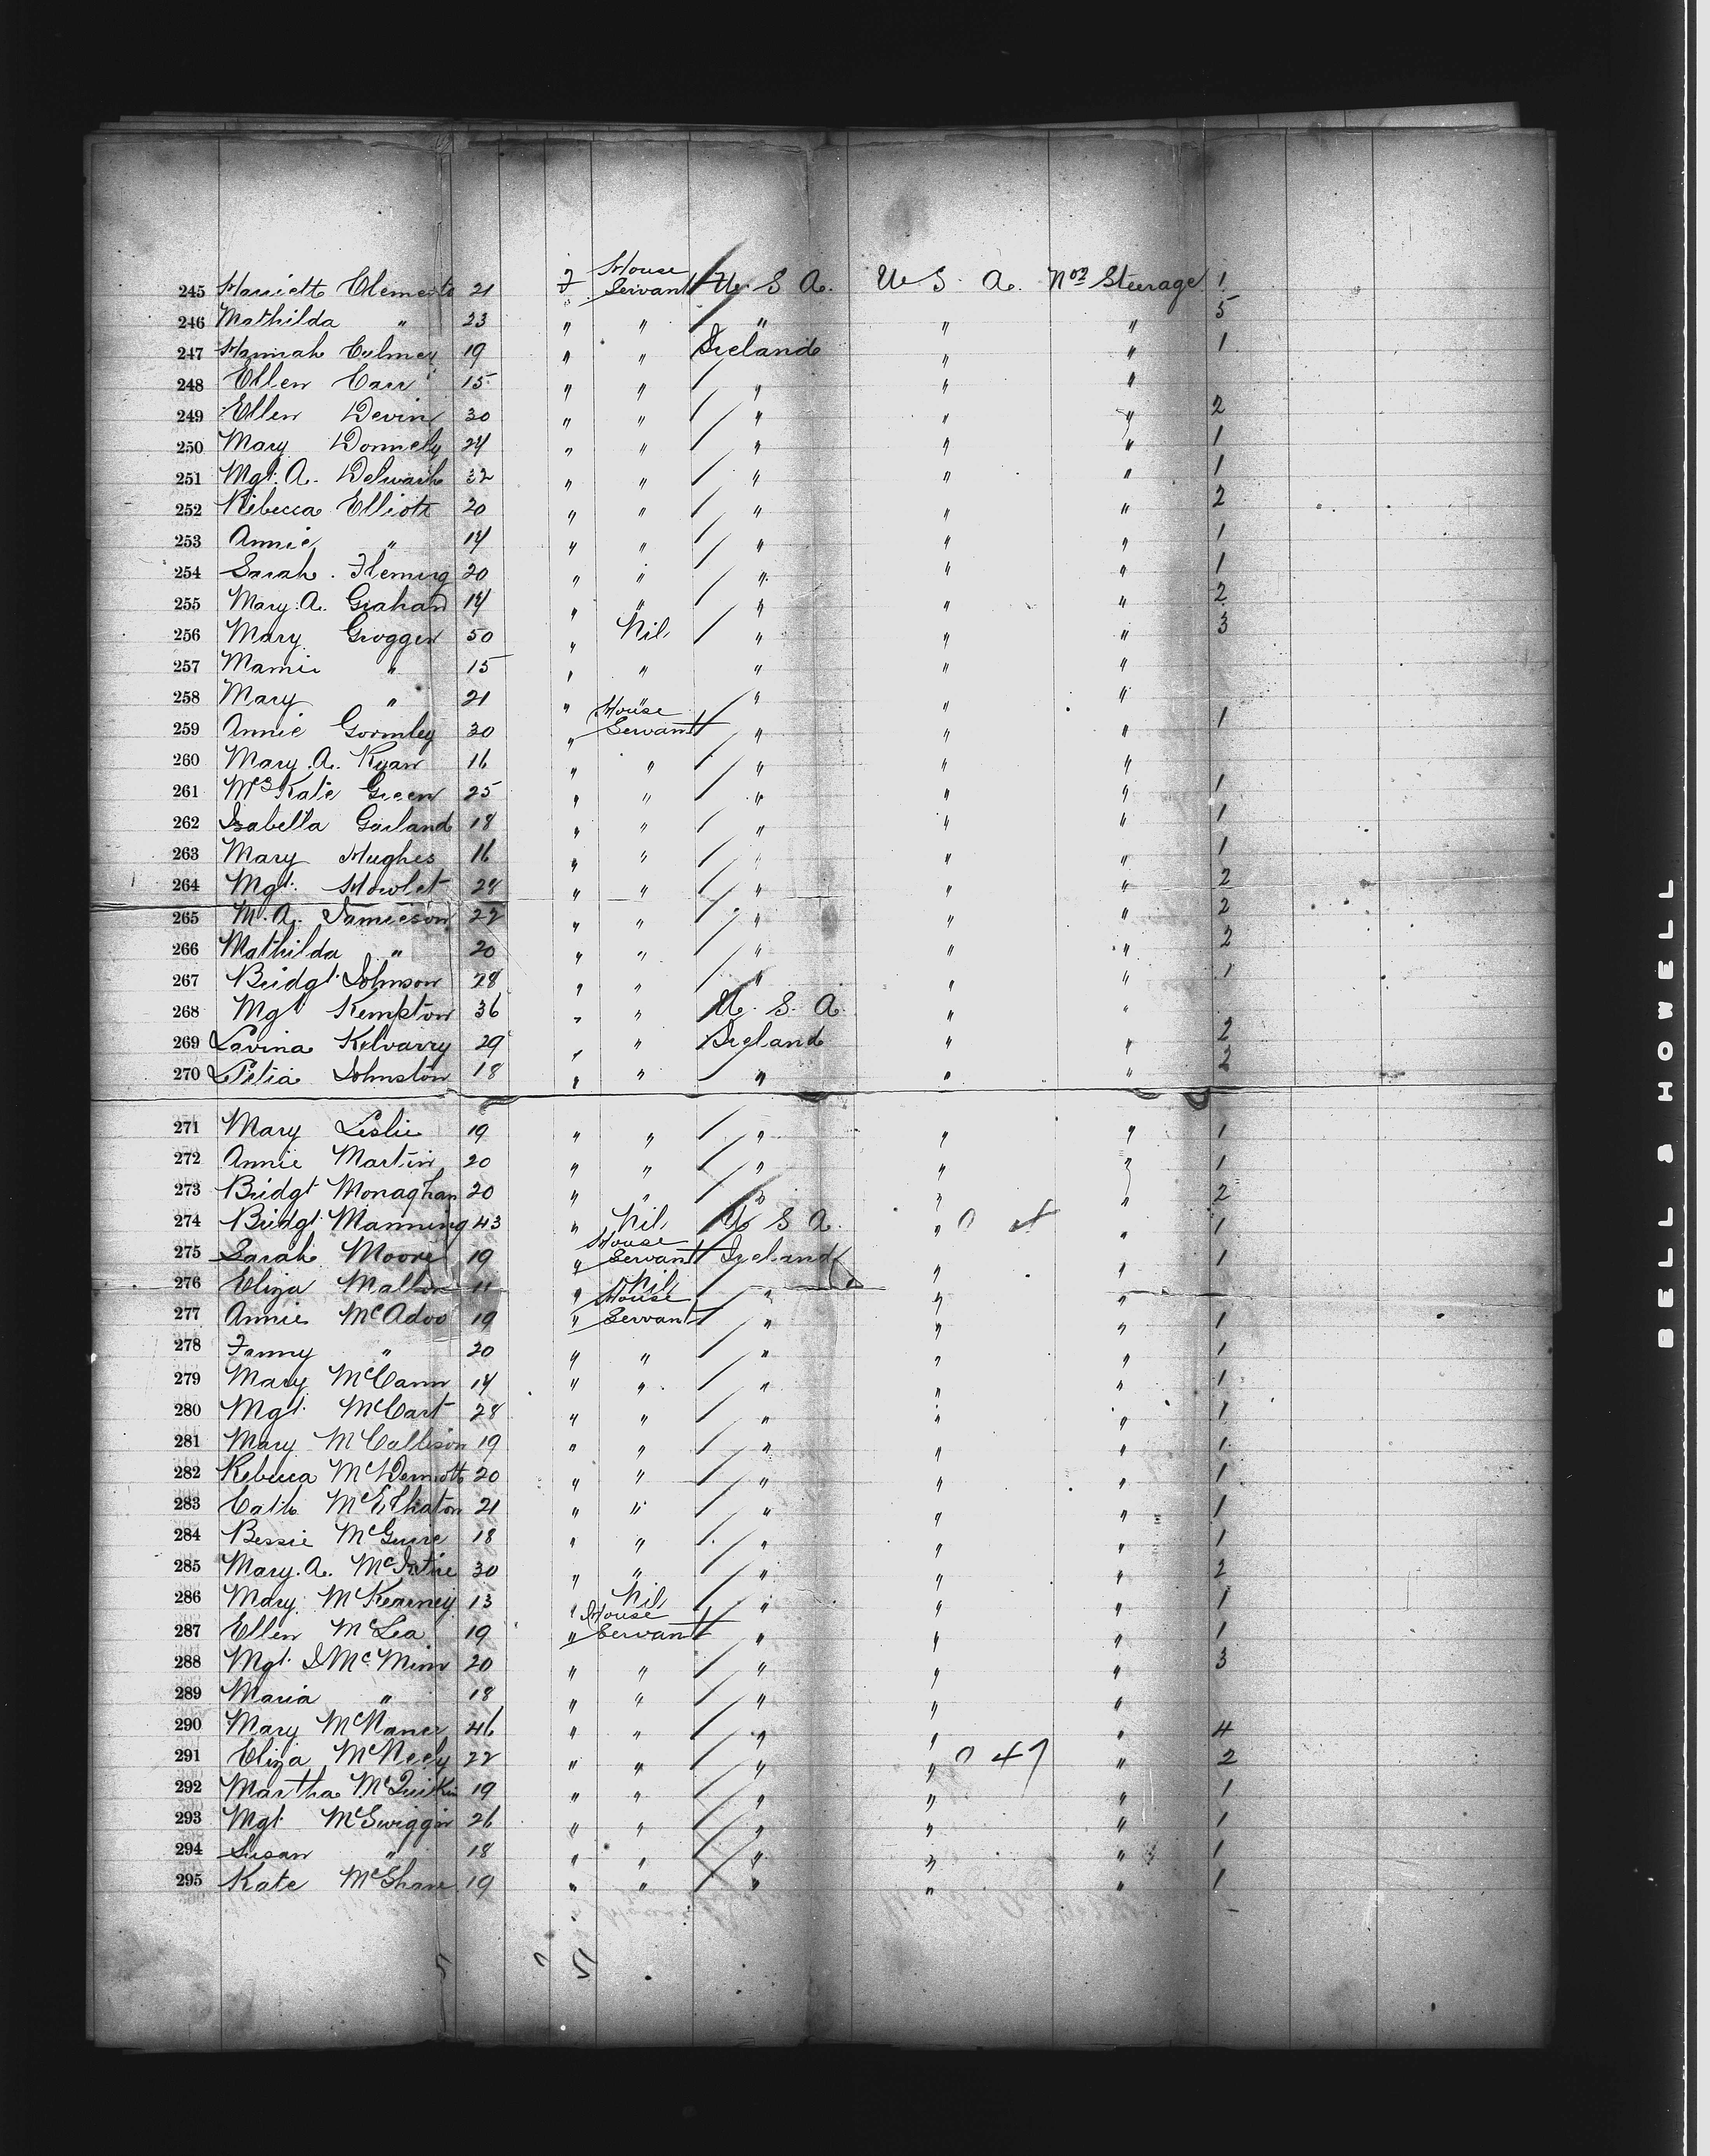 245 Harriett Clements 21 F House Servant U. S. A. U S. A. Nor Steerage 1
246 Mathilda " 23 " " " " " 5
247 Hannah Culmey 19 " " Ireland " " 1
248 Ellen Carr 15 " " " " "
249 Ellen Devin 30 " " " " " 2
250 Mary Donnely 24 " " " " " 1
251 Mgt. A. 32 " " " " " 1
252 Rebecca Elliott 20 " " " " " 2
253 Annie " 14 " " " " " 1
254 Sarah Fleming 20 " " " " " 1
255 Mary. A. Graham 14 " " " " " 2
256 Mary Groggen 50 " Nil " " " 3
257 Mamie " 15 " " " " "
258 Mary " 21 " " " " "
259 Annie Gormley 30 " House Servant " " " 1
260 Mary. A. Ryan 16 " " " " "
261 Mrs Kate Green 25 " " " " " 1
262 Isabella Garland 18 " " " " " 1
263 Mary Hughes 16 " " " " " 1
264 Mgt. Howlet 28 " " " " " 2
265 M. A. Jamieson 22 " " " " " 2
266 Mathilda " 20 " " " " " 2
267 Bridgt. Johnson 28 " " " " " 1
268 Mgt Kempton 36 " " U. S. A. " "
269 Lavina Kilvarry 29 " " Ireland " " 2
270 Letia Johnston 18 " " " " " 2
271 Mary Leslie 19 " " " " " 1
272 Annie Martin 20 " " " " " 1
273 Bridgt Monaghan 20 " " " " " 2
274 Bridgt. Manning 43 " Nil U S A. " " 1
275 Sarah Moore 19 " House Servant Ireland " " 1
276 Eliza Mallon 11 " Nil " " "
277 Annie McAdoo 19 " House Servant " " " 1
278 Fanny " 20 " " " " " 1
279 Mary McCann 14 " " " " " 1
280 Mgt. McCart 28 " " " " " 1
281 Mary McCallison 19 " " " " " 1
282 Rebecca McDermott 20 " " " " " 1
283 Cath McElhaton 21 " " " " " 1
284 Bessie McGuire 18 " " " " " 1
285 Mary. A. McIntire 30 " " " " " 2
286 Mary McKearney 13 " Nil " " " 1
287 Ellen McLea 19 " House Servant " " " 1
288 Mgt. J McMinn 20 " " " " " 3
289 Maria " 18 " " " " "
290 Mary McNaner 46 " " " " " 4
291 Eliza McNeely 22 " " " " 0 47 " 2
292 Martha McQuilkin 19 " " " " " 1
293 Mgt. McSwiggin 26 " " " " " 1
294 Susan " 18 " " " " " 1
295 Kate McShane 19 " " " " " 1
BELL & HOWELL